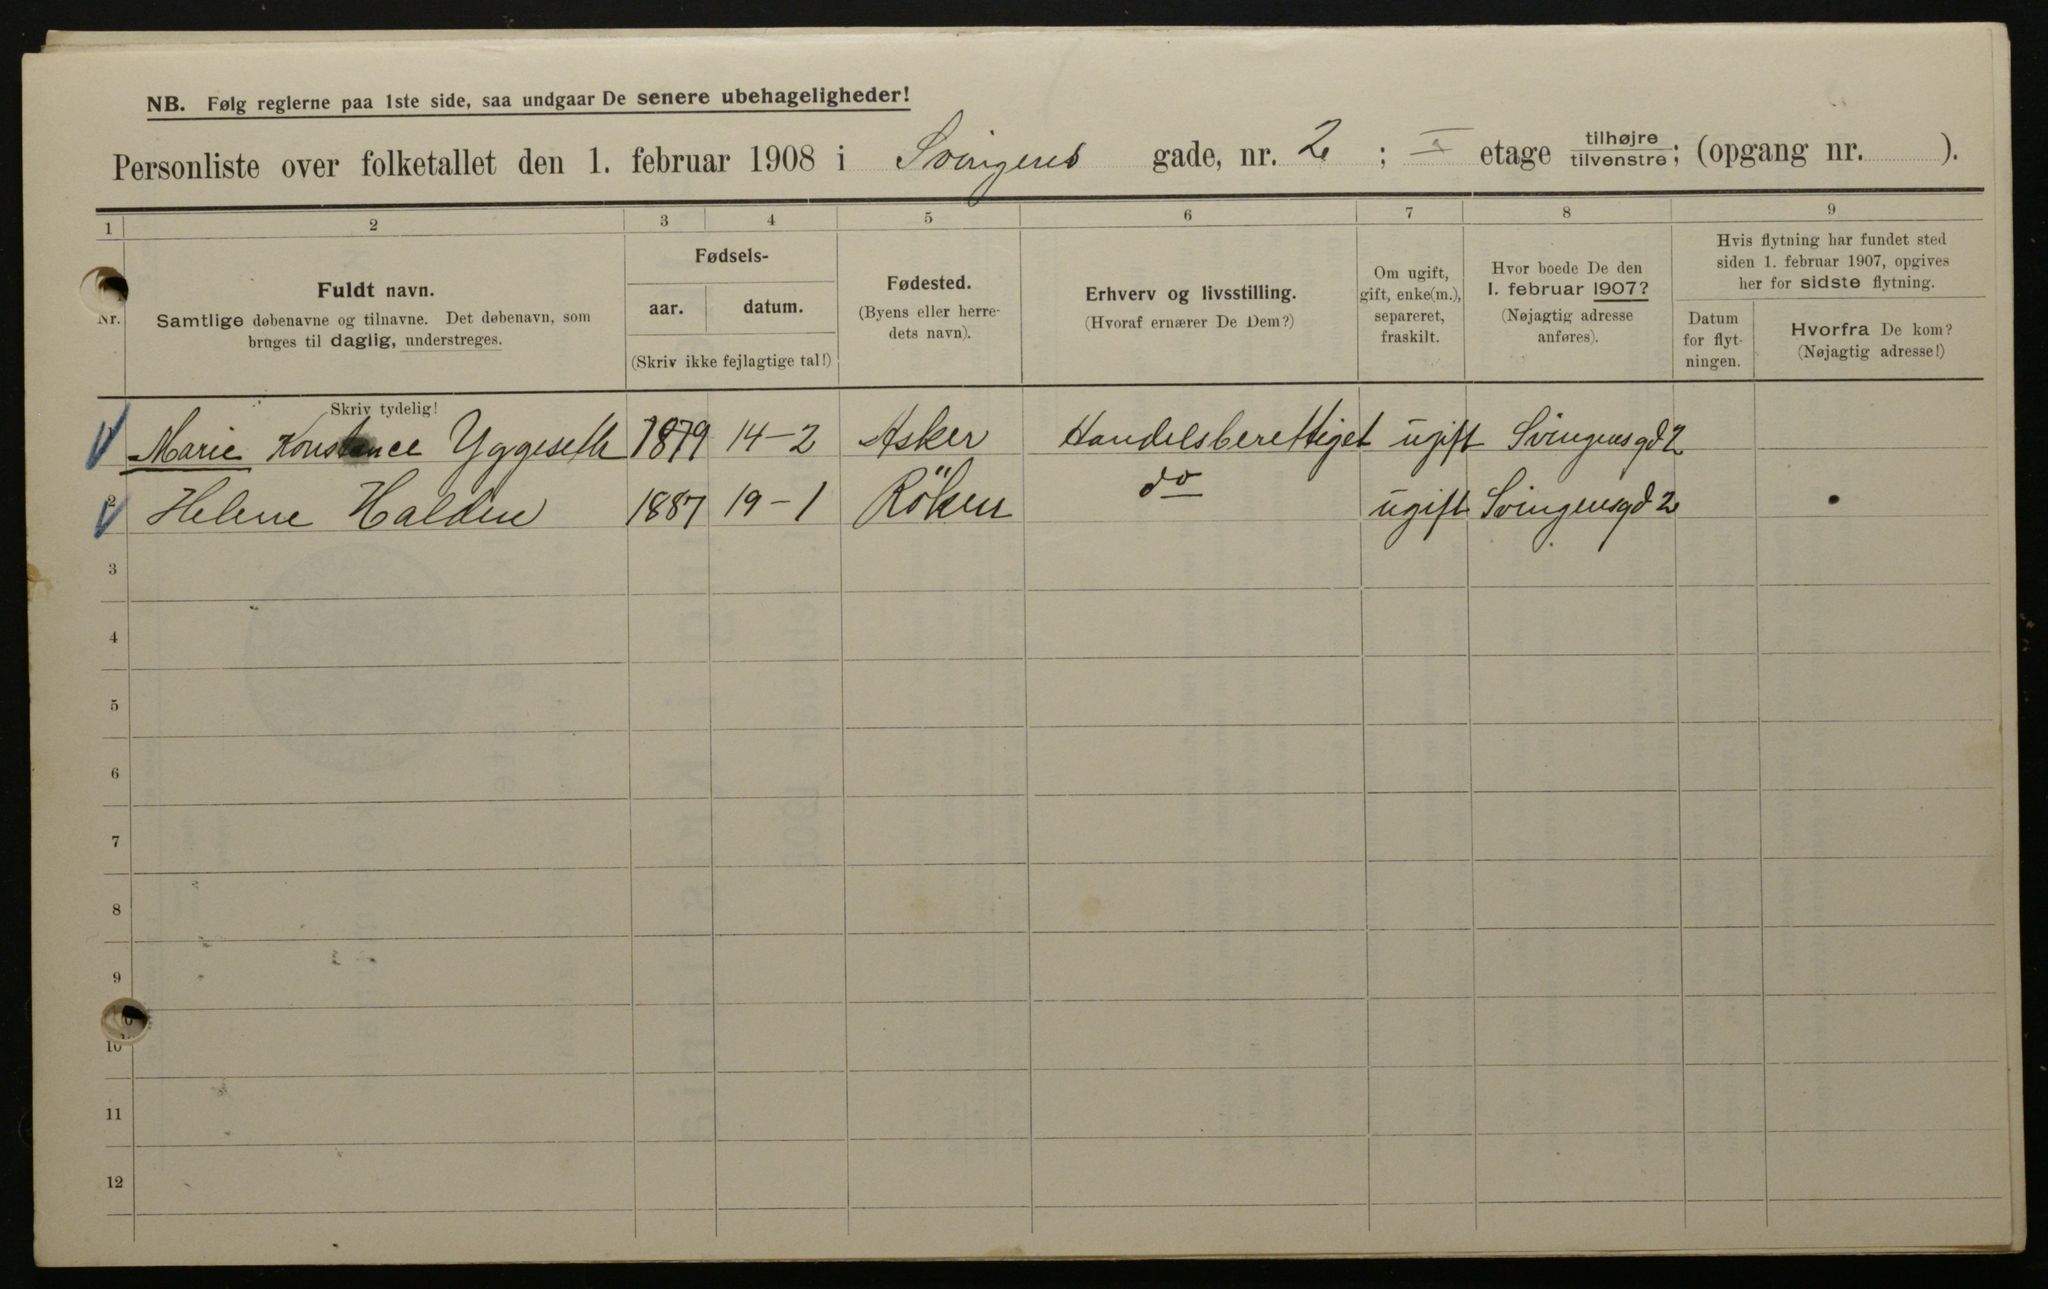 NB. Følg reglerne paa 1ste side, saa undgaar De senere ubehageligheder!
Personliste over folketallet den 1. februar 1908 i Svingens gade, nr. 2 ; I etage tilhøjre/tilvenstre; (opgang nr. ).
1 2 3 4 5 6 7 8 9
Nr.
Fuldt navn.
Samtlige døbenavne og tilnavne. Det døbenavn, som
bruges til daglig, understreges.
Fødsels-
aar. datum.
(Skriv ikke fejlagtige tal!)
Fødested.
(Byens eller herre-
dets navn).
Erhverv og livsstilling.
(Hvoraf ernærer De Dem?)
Om ugift,
gift, enke(m.),
separeret,
fraskilt.
Hvor boede De den
1. februar 1907?
(Nøjagtig adresse
anføres).
Hvis flytning har fundet sted
siden 1. februar 1907, opgives
her for sidste flytning.
Datum
for flyt-
ningen.
Hvorfra De kom?
(Nøjagtig adresse!)
Skriv tydelig!
Marie Konstance Yggeseth 1879 14-2 Asker Handelsberettiget ugift Svingensgd 2
2 Helene Halden 1887 19-1 Röken do ugift Svingensgd 2
3
4
5
6
7
8
9
10
11
12